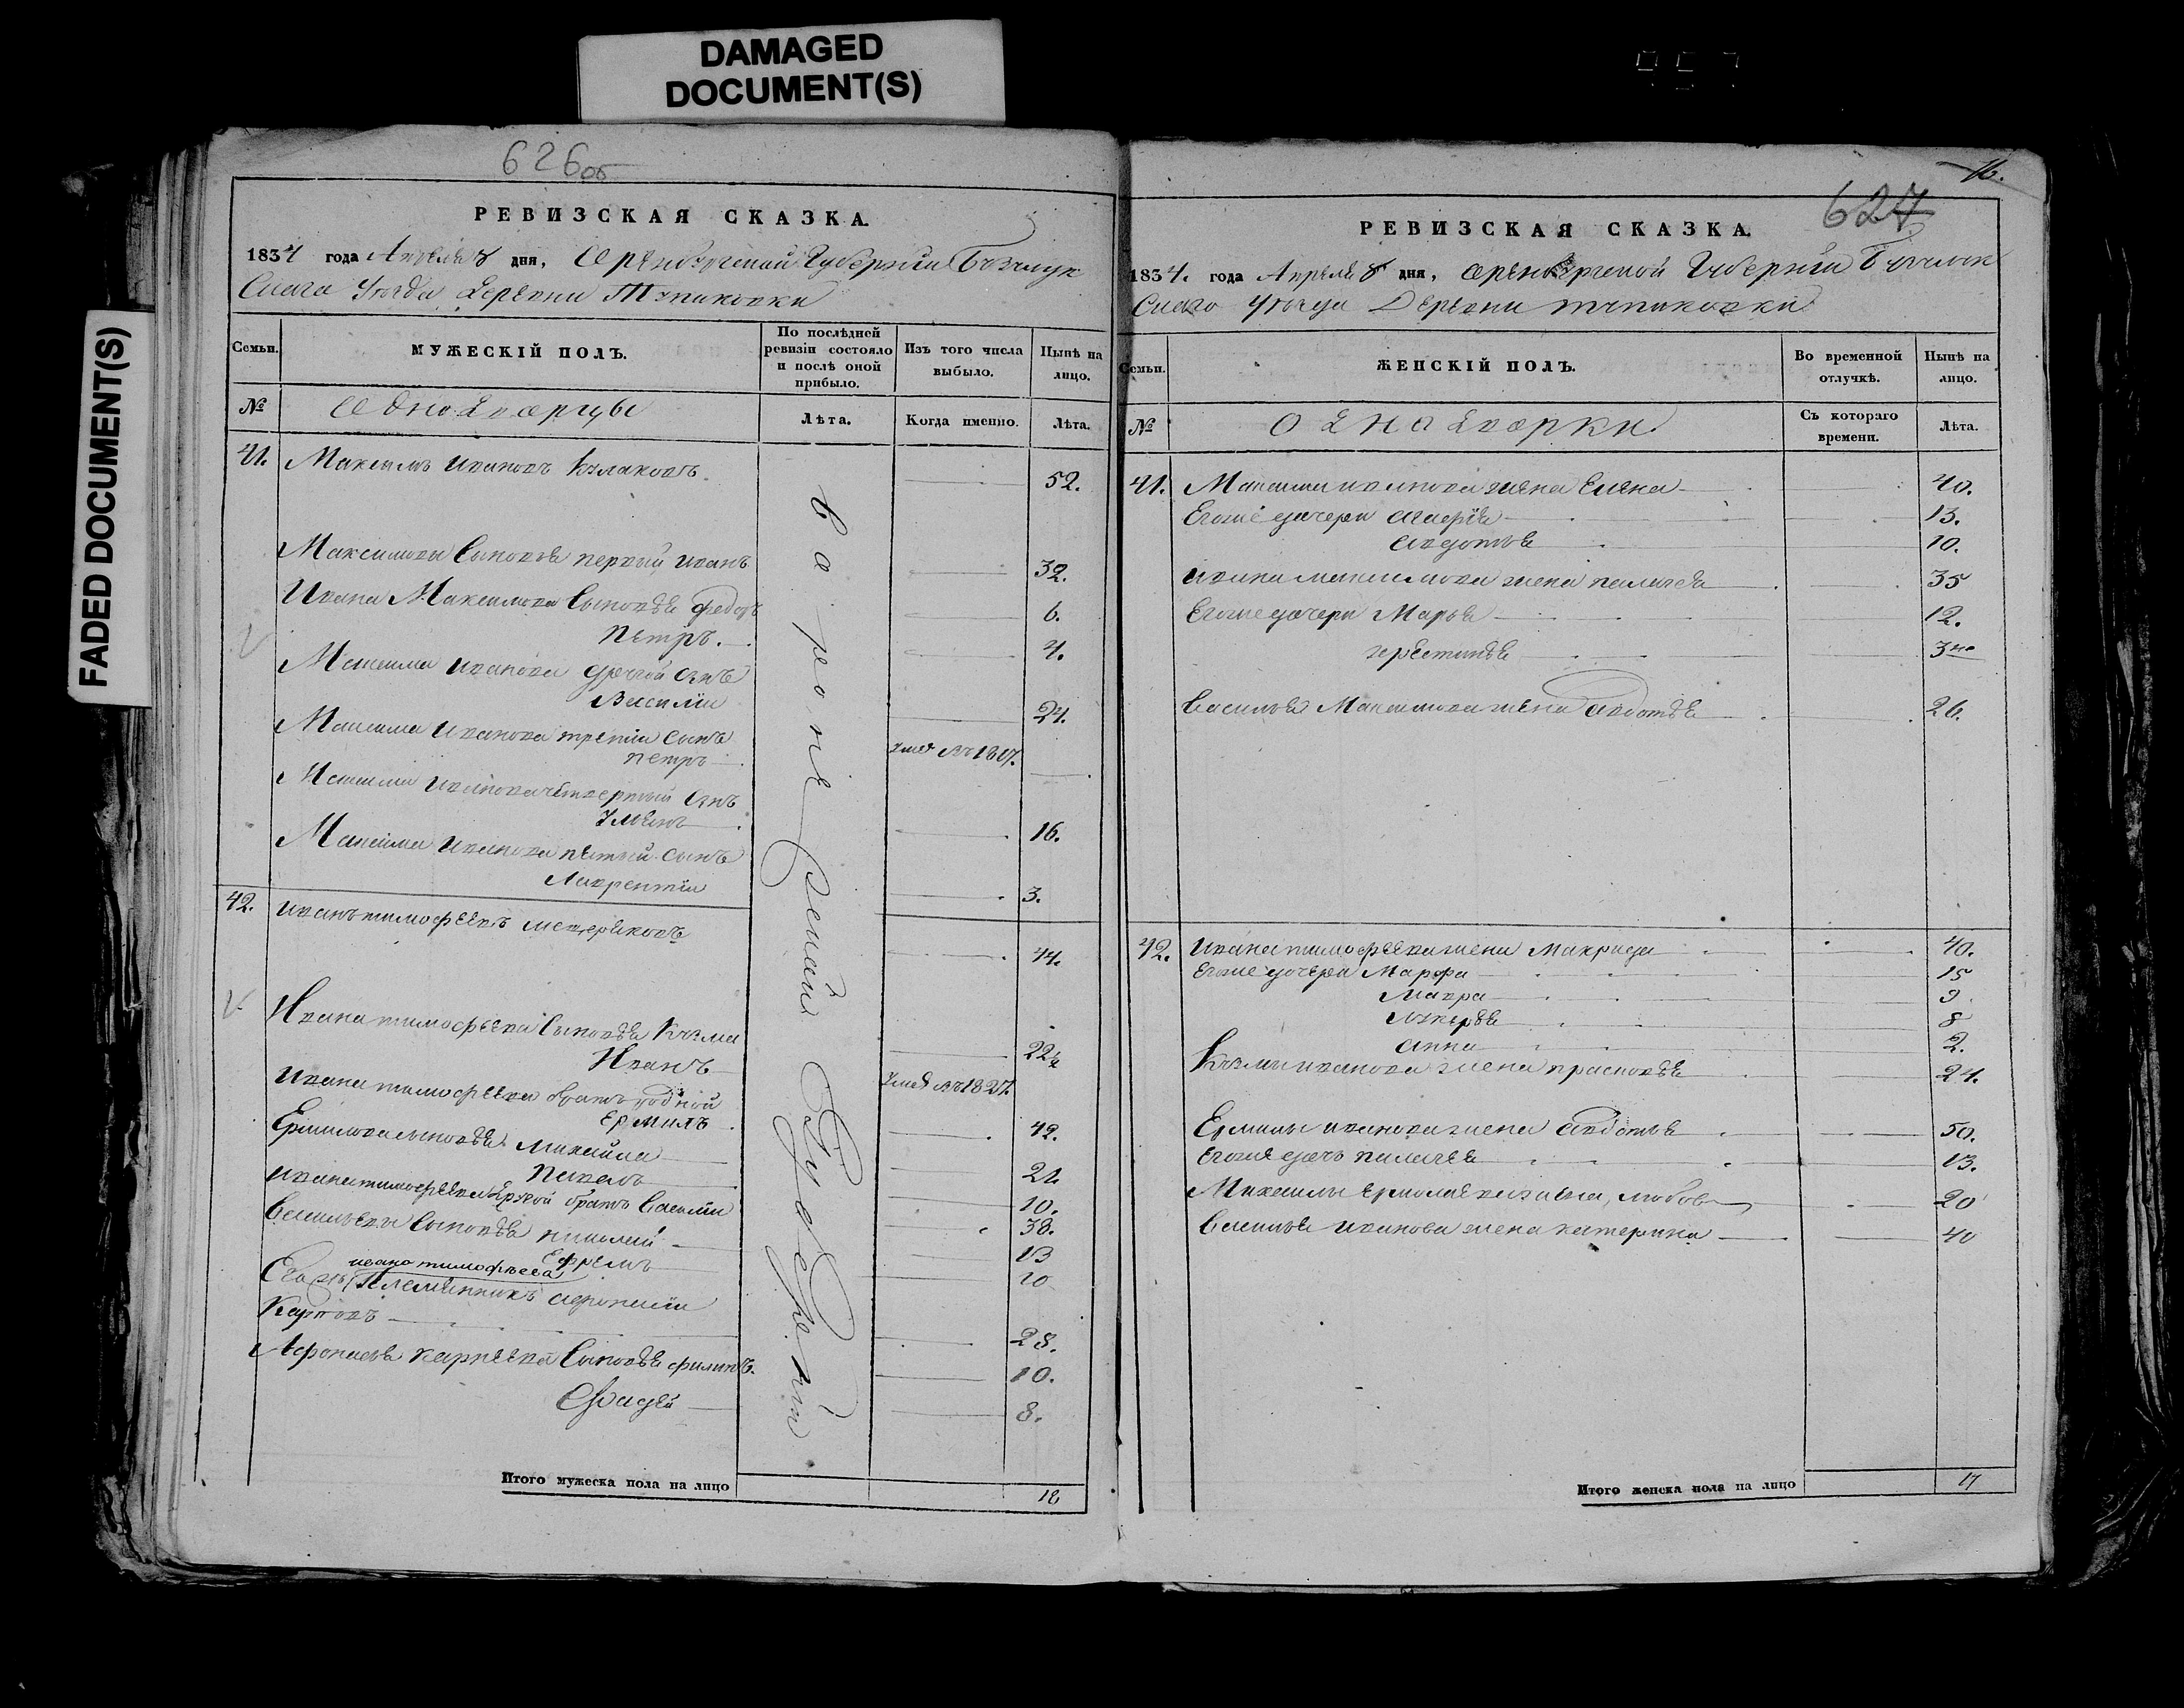 DAMAGED
DOCUMENT(S)
FADED DOCUMENT(S)
626об
РЕВИЗСКАЯ СКАЗКА.
1834 года Апреля 8 дня, Оренбургской Губернии Бузулук
Скаго Уезда Деревни
Семьи.
МУЖЕСКІЙ ПОЛЪ.
По послѣдней ревизіи состояло и послѣ оной прибыло.
Изъ того числа выбыло.
Нынѣ на лицо.
№
Однодворцы
Лѣта.
Когда именно.
Лѣта.
41. Максимъ Ивановъ Кулаковъ. 52.
Максимовы Сыновья первый Иванъ 32.
Ивана Максимова Сыновья Федоръ 6.
Петръ. 4.
Максима Иванова другой сынъ
Василий 24.
Максима Иванова третий сынъ
петръ
Максима Иванова четвертый сынъ
16.
Максима Иванова пятый сынъ
Лаврентий 3.
42. Иванъ тимофеевъ 44.
Ивана тимофеева Сыновья Кузма 22½
Иванъ умеръ въ 1827.
Ивана тимофеева братъ родной
Ермилъ 42.
Ермилова сыновья Михайла 21.
Павелъ 10.
Ивана тимофеева другой братъ Василий 38.
Васильевы Сыновья николай 13
Ефремъ 10
ивана тимофеева
племянникъ афонасий
Карповъ 28.
Афонасья карпеева Сыновья филипъ. 10.
Фадей 8.
Итого мужеска пола на лицо 18
16.
627
РЕВИЗСКАЯ СКАЗКА.
1834. года Апреля 8 дня, Оренбургской Губерніи Бузулок
Скаго уезда Деревни
Семьи.
ЖЕНСКІЙ ПОЛЪ.
Во временной отлучкѣ.
Нынѣ на лицо.
№
Однадворки
Съ котораго времени.
Лѣта.
41. Максима иванова жена Елена 40.
Егоже дочери агафія 13.
авдотья 10.
ивана максимова жена пелагея 35
Егоже дочери Марья 12.
3
Василья Максимова жена авдотья 26.
42. Ивана тимофеева жена Макрида 40.
Егоже дочери Марфа 15
Мавра 9
лукерья 8
анна 2.
Кузмы иванова жена прасковья 24.
Ермилы иванова жена авдотья 50.
Егоже дочь пелагея 13.
Михаилы жена любовь 20
Василья иванова жена катерина 40
Итого женска пола на лицо 17